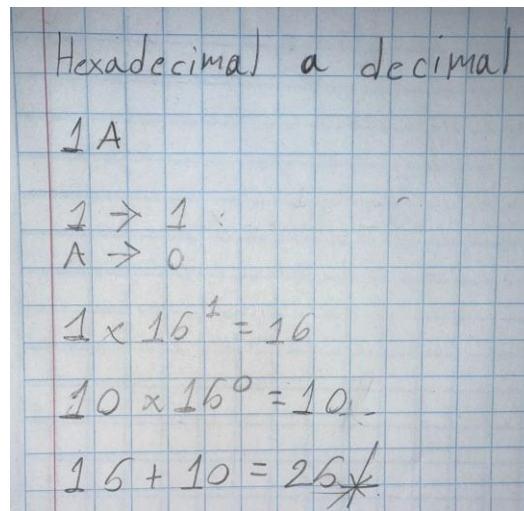 Hexadecimal a decimal
1 A
1 → 1
A → 0
1 x 16¹ = 16
10 x 16⁰ = 10
16 + 10 = 26